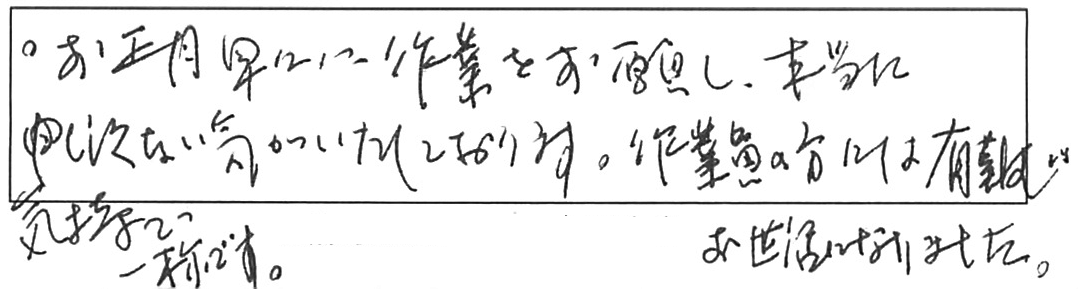 。お正月早々に作業をお願いし、本当に
申し訳ない気がいたしております。作業員の方には有難い
気持で
一杯です。
お世話になりました。